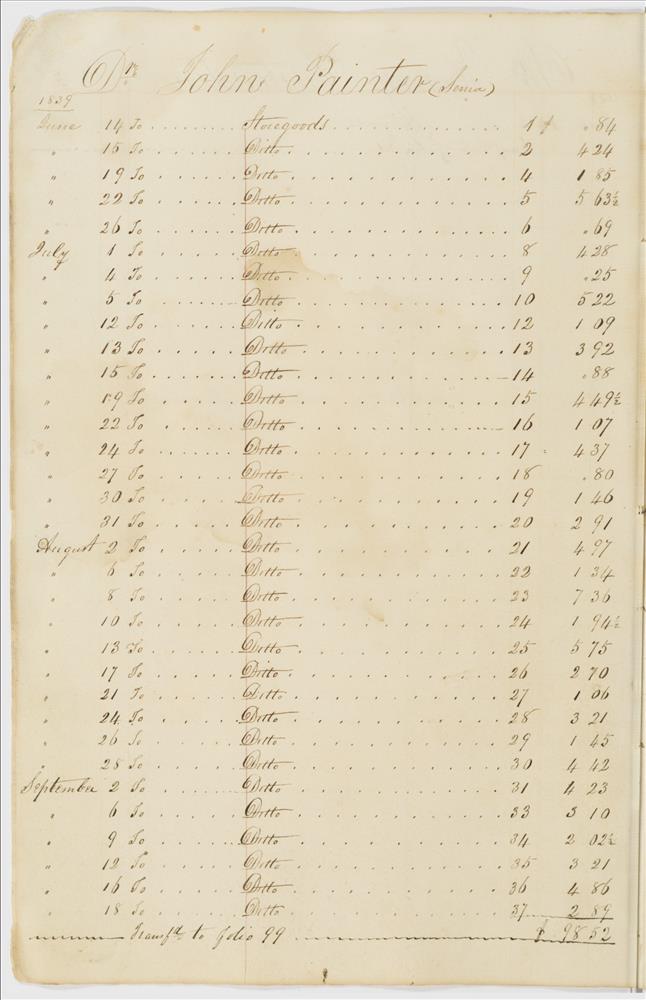 Dr. John Painter (Senia)
1839
June 14 To Storegoods 1 " 84
" 15 To Ditto 2 4 24
" 19 To Ditto 4 1 85
" 22 To Ditto 5 5 63½
" 26 To Ditto 6 " 69
July 1 To Ditto 8 4 28
" 4 To Ditto 9 " 25
" 5 To Ditto 10 5 22
" 12 To Ditto 12 1 09
" 13 To Ditto 13 3 92
" 15 To Ditto 14 " 88
" 19 To Ditto 15 4 49½
" 22 To Ditto 16 1 07
" 24 To Ditto 17 4 37
" 27 To Ditto 18 " 80
" 30 To Ditto 19 1 46
" 31 To Ditto 20 2 91
August 2 To Ditto 21 4 97
" 6 To Ditto 22 1 34
" 8 To Ditto 23 7 36
" 10 To Ditto 24 1 94½
" 13 To Ditto 25 5 75
" 17 To Ditto 26 2 70
" 21 To Ditto 27 1 06
" 24 To Ditto 28 3 21
" 26 To Ditto 29 1 45
" 28 To Ditto 30 4 42
September 2 To Ditto 31 4 23
" 6 To Ditto 33 3 10
" 9 To Ditto 34 2 02½
" 12 To Ditto 35 3 21
" 16 To Ditto 36 4 86
" 18 To Ditto 37 2 89
Transfd. to folio 99 $ 98 52